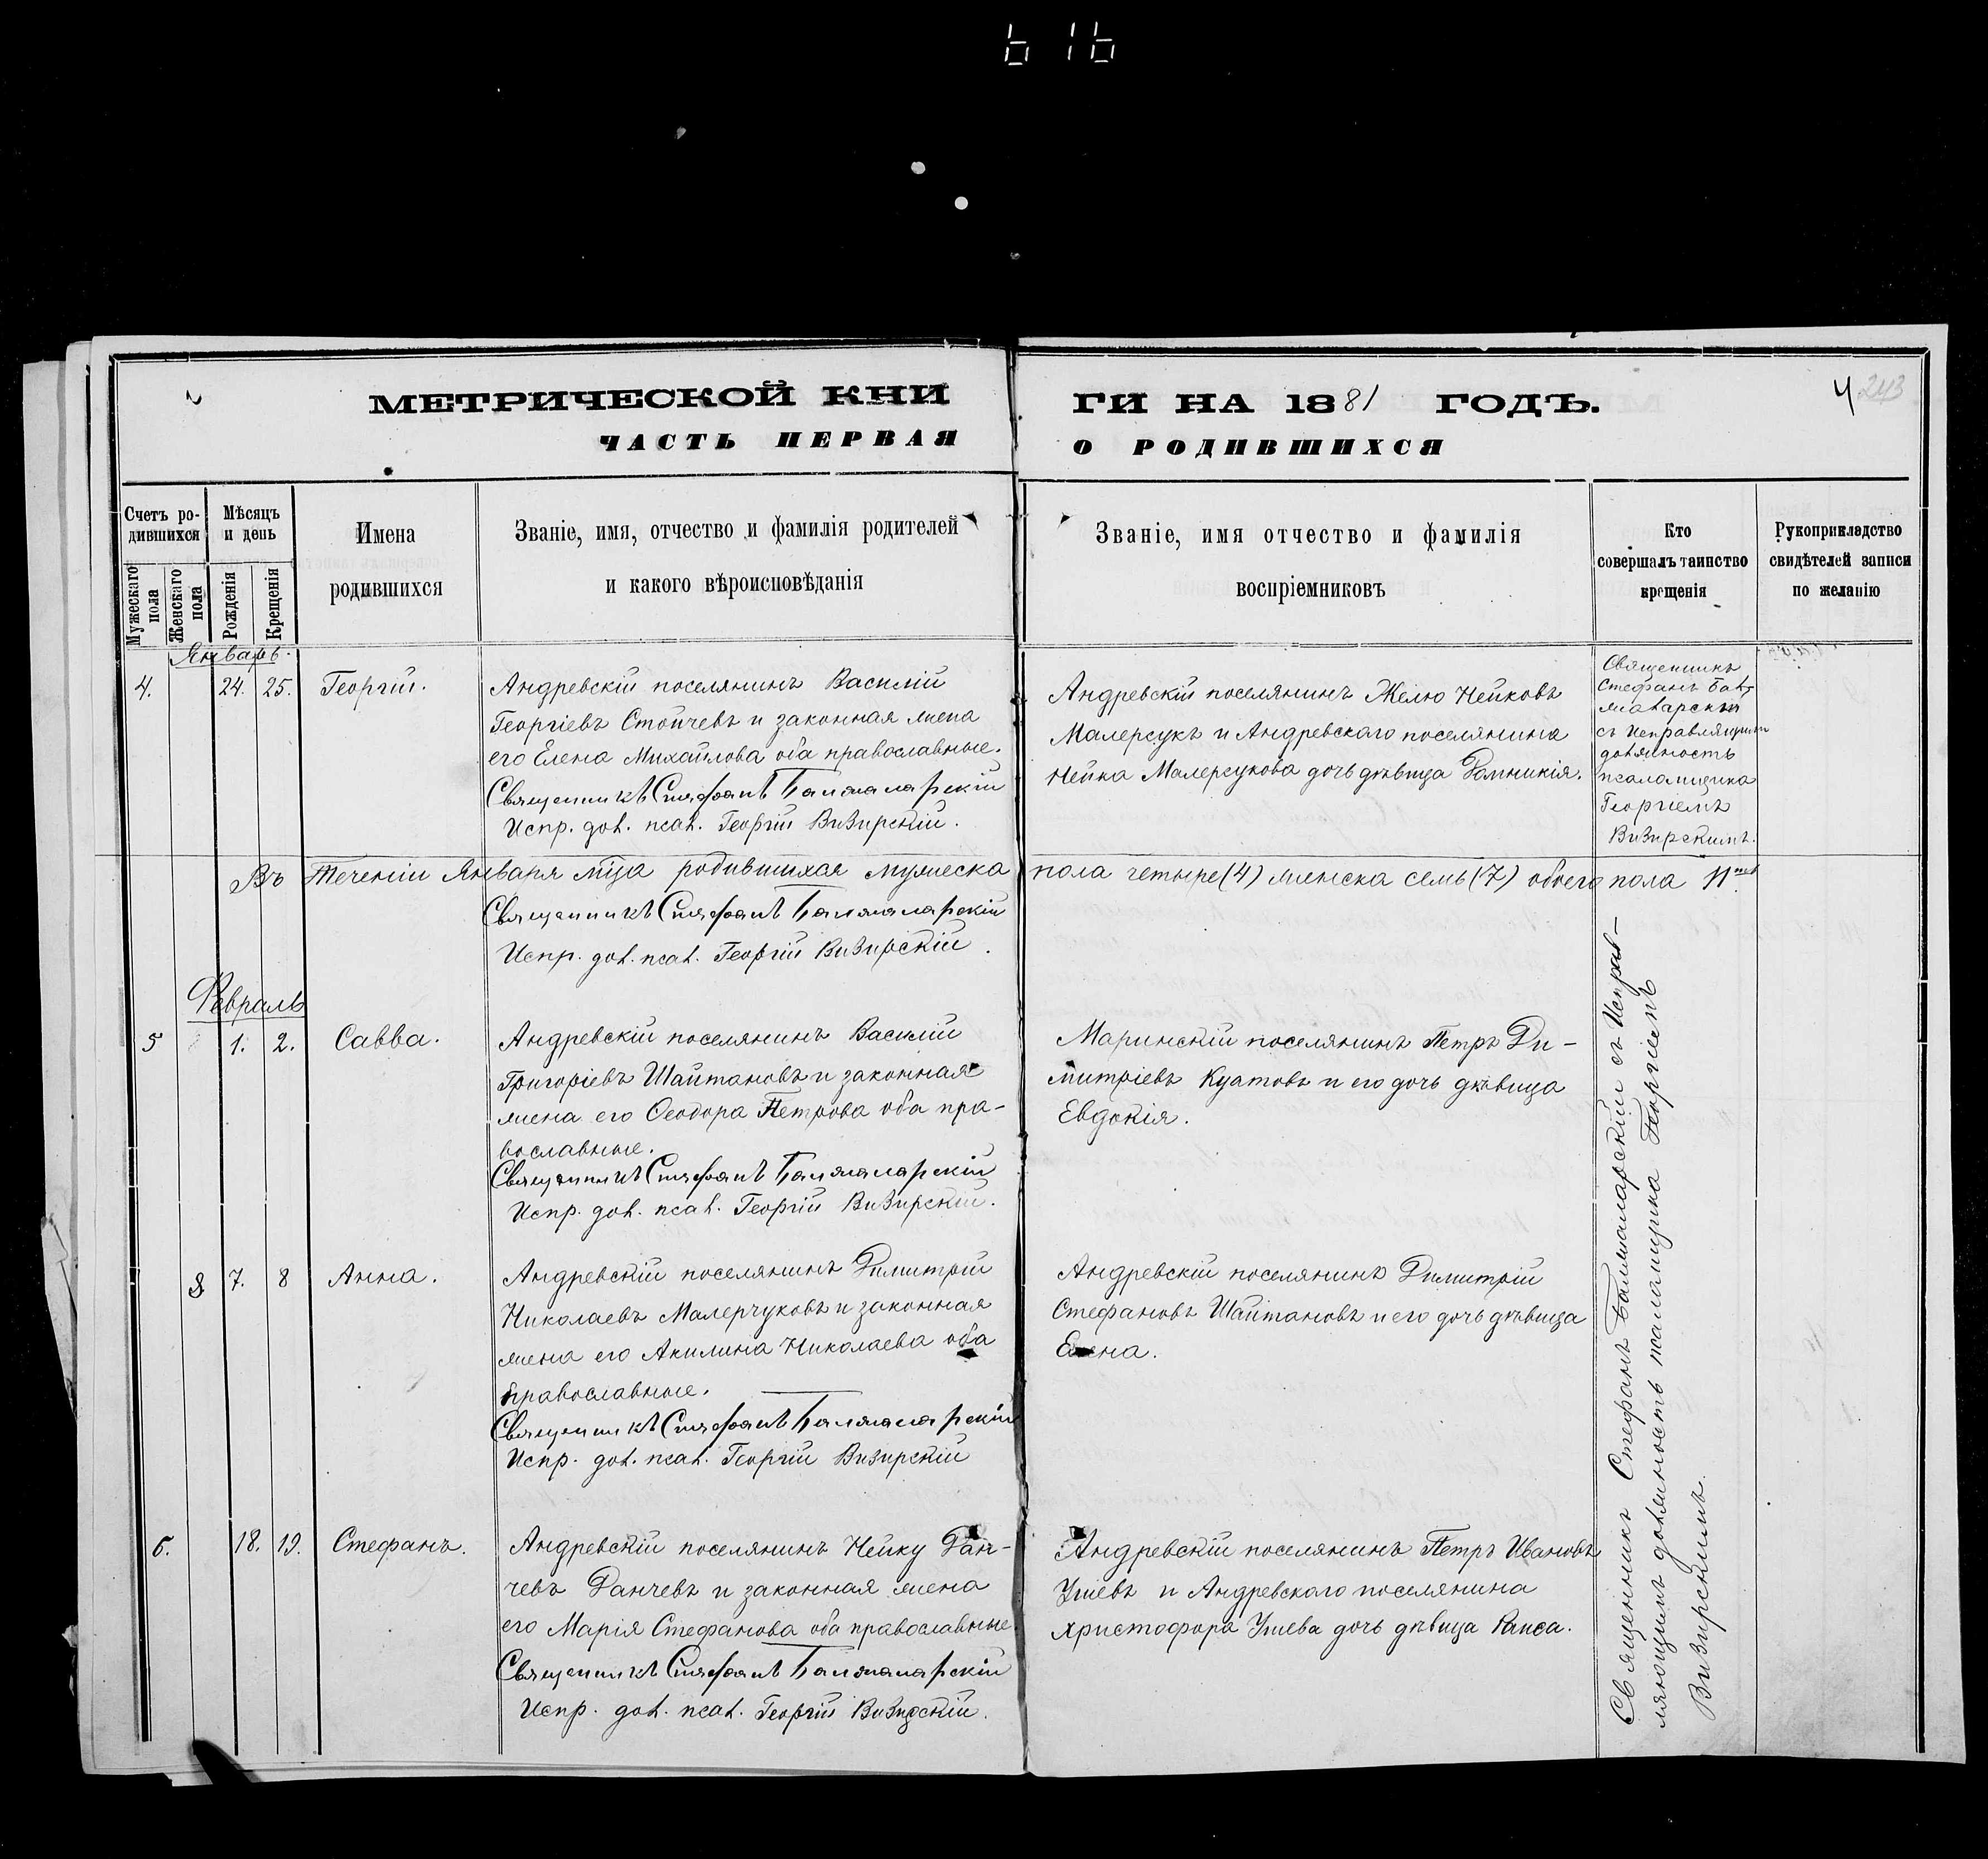 616
МЕТРИЧЕСКОЙ КНИ
ГИ НА 1881 ГОДЪ.
4 243
ЧАСТЬ ПЕРВАЯ
О РОДИВШИХСЯ
Счетъ ро-
дившихся
Мужескаго
пола
Женскаго
пола
Мѣсяцъ
и день
Рожденія
Крещенія
Имена
родившихся
Званіе, имя, отчество и фамилія родителей
и какого вѣроисповѣданія
Званіе, имя отчество и фамилія
воспріемниковъ
Кто
совершалъ таинство
крещенія
Рукоприкладство
свидѣтелей записи
по желанію
Январь.
4. 24. 25. Георгій.
Андревскій поселянинъ Василій
Георгіевъ Стойчевъ и законная жена
его Елена Михайлова оба православные.
Священникъ Стефанъ Балжаларскій
Испр. дол. псал. Георгій Визирскій.
Андревскій поселянинъ Желю Нейковъ
Малерсукъ и Андревскаго поселянина
Нейка Малерсукова дочь дѣвица Домникія.
Священникъ
Стефанъ Бал
жаларскій
съ Исправляющимъ
должность
псаломщика
Георгіемъ
Визирскимъ.
Въ теченіи Января мѣца родившихся мужеска пола четыре (4) женска семь (7) обоего пола 11
Священникъ Стефанъ Балжаларскій
Испр. дол. псал. Георгій Визирскій.
Февраль
5 1. 2. Савва.
Андревскій поселянинъ Василій
Григоріевъ Шайтановъ и законная
жена его Ѳеодора Петрова оба пра-
вославные.
Священникъ Стефанъ Балжаларскій
Испр. дол. псал. Георгій Визирскій.
Маринскій поселянинъ Петръ Ди-
митріевъ Куатовъ и его дочь дѣвица
Евдокія.
8 7. 8 Анна.
Андревскій поселянинъ Димитрій
Николаевъ Малерчуковъ и законная
жена его Акилина Николаева оба
православные.
Священникъ Стефанъ Балжаларскій
Испр. дол. псал. Георгій Визирскій
Андревскій поселянинъ Димитрій
Стефановъ Шайтановъ и его дочь дѣвица
Елена.
6. 18. 19. Стефанъ.
Андревскій поселянинъ Нейку Дан-
чевъ Данчевъ и законная жена
его Марія Стефанова оба православные
Священникъ Стефанъ Балжаларскій
Испр. дол. псал. Георгій Визирскій.
Андревскій поселянинъ Петръ Ивановъ
Узіевъ и Андревскаго поселянина
Христофора Узіева дочь дѣвица Раиса.
Священникъ Стефанъ Балжаларскій съ Исправ-
ляющимъ должность псаломщика Георгіемъ
Визирскимъ.